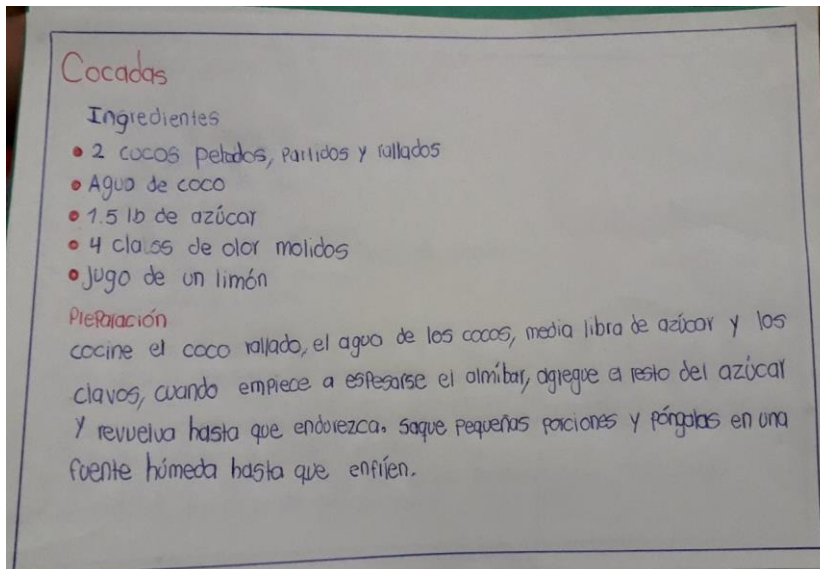 Cocadas
Ingredientes
• 2 cocos pelados, partidos y rallados
• Agua de coco
• 1.5 lb de azúcar
• 4 clavos de olor molidos
• Jugo de un limón
Preparación
cocine el coco rallado, el agua de los cocos, media libra de azúcar y los
clavos, cuando empiece a espesarse el almíbar, agregue el resto del azúcar
y revuelva hasta que endurezca. Saque pequeñas porciones y póngalas en una
fuente húmeda hasta que enfríen.